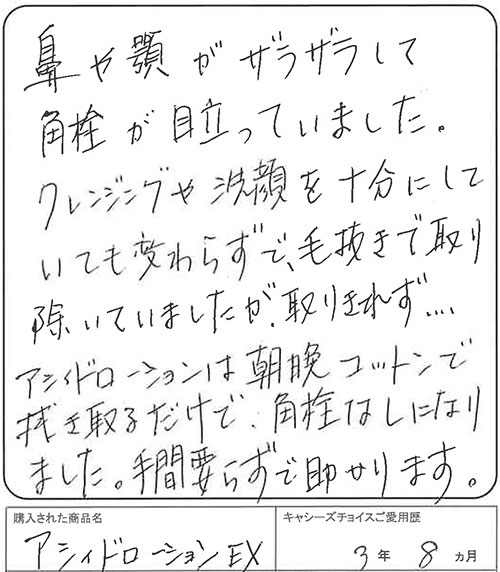 鼻や顎がザラザラして
角栓が目立っていました。
クレンジングや洗顔を十分にして
いても変わらずで、毛抜きで取り
除いていましたが、取りきれず....
アシィドローションは朝晩コットンで
拭き取るだけで、角栓なしになり
ました。手間要らずで助かります。
購入された商品名
キャシーズチョイスご愛用歴
アシィドローションEX
3年8ヵ月